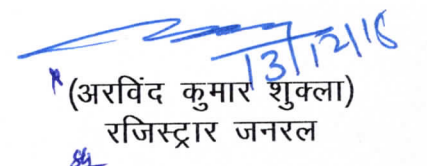 13/12/18
(अरविंद कुमार शुक्ला)
रजिस्ट्रार जनरल